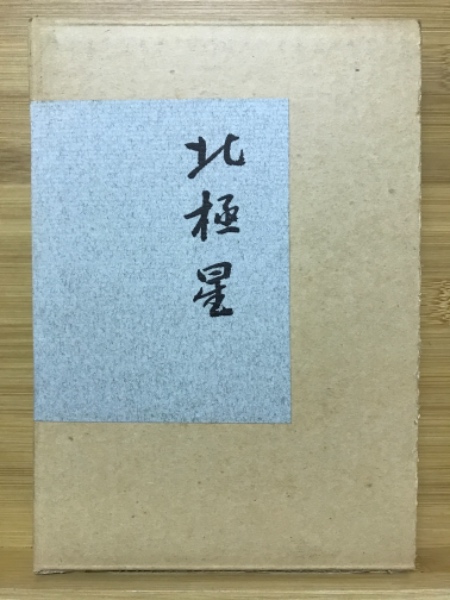 北極星